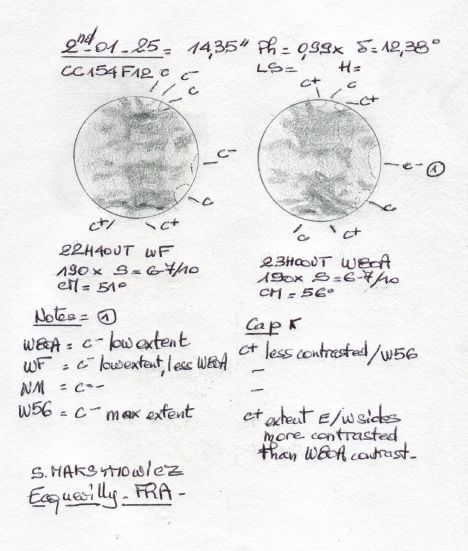 2nd-01-25= 14,35" Ph= 0,99x δ=12,38°
CC154F12 LS= H=
c c- c
c+ c c+
c-
c- ①
c
c
c+ c+
c c+
22H40UT WF
190x S=6-7/10
CM=51°
23H00UT W80A
190x S=6-7/10
CM=56°
Notes= ①
W80A = c- low extent
WF = c- low extent, less W80A
NM = c--
W56 = c- max extent
Cap
c+ less contrasted/W56
-
-
c+ extent E/W sides
more contrasted
than W80A contrast-
S. MAKSYMOWICZ
Ecquevilly-FRA-